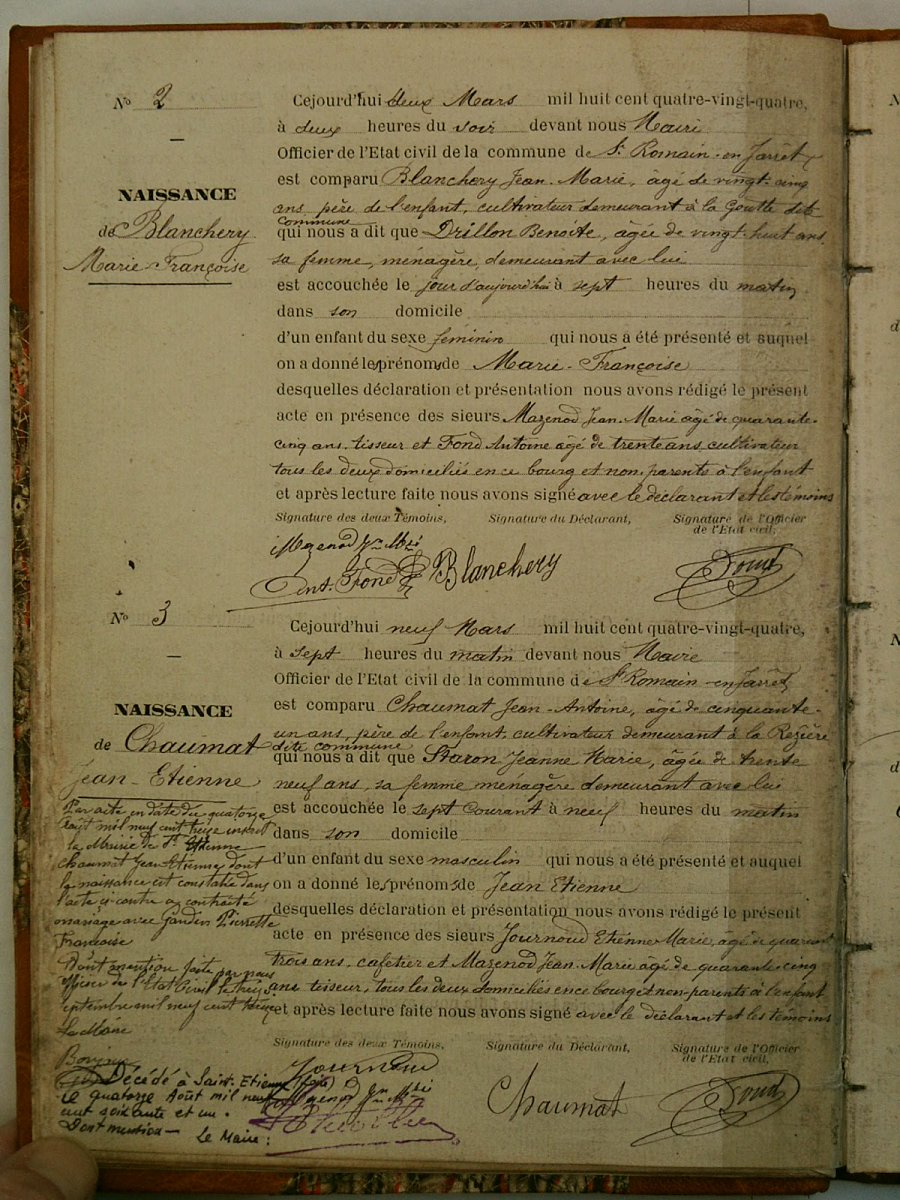 N° 2
NAISSANCE
de Blanchery
Marie-Françoise
Cejourd'hui deux Mars mil huit cent quatre-vingt-quatre,
à deux heures du soir devant nous Maire
Officier de l'Etat civil de la commune de St Romain-en-Jarret
est comparu Blanchery Jean-Marie, âgé de vingt-cinq
ans, père de l'enfant, cultivateur demeurant à la Goutte dite
commune
qui nous a dit que Drillon Benoîte, âgée de vingt-huit ans,
sa femme, ménagère, demeurant avec lui
est accouchée le jour d'aujourd'hui à sept heures du matin
dans son domicile
d'un enfant du sexe féminin qui nous a été présenté et auquel
on a donné les prénoms de Marie-Françoise
desquelles déclaration et présentation nous avons rédigé le présent
acte en présence des sieurs Mazenod Jean-Marie âgé de quarante-
cinq ans, tisseur et Fond Antoine âgé de trente ans, cultivateur
tous les deux domiciliés en ce bourg et non-parents à l'enfant
et après lecture faite nous avons signé avec le déclarant et les témoins
Signature des deux Témoins, Signature du Déclarant, Signature de l'Officier
de l'Etat civil,
Mazenod Jn Mie
Ant. Fond Blanchery
N° 3
NAISSANCE
de Chaumat
Jean-Etienne
Cejourd'hui neuf Mars mil huit cent quatre-vingt-quatre,
à sept heures du matin devant nous Maire
Officier de l'Etat civil de la commune de St Romain-en-Jarret
est comparu Chaumat Jean-Antoine, âgé de cinquante-
un ans, père de l'enfant, cultivateur demeurant à la Rezière
dite commune
qui nous a dit que Staron Jeanne Marie, âgée de trente
neuf ans, sa femme ménagère demeurant avec lui
est accouchée le sept Courant à neuf heures du matin
dans son domicile
d'un enfant du sexe masculin qui nous a été présenté et auquel
on a donné les prénoms de Jean Etienne
desquelles déclaration et présentation nous avons rédigé le présent
acte en présence des sieurs Journoud Etienne Marie, âgé de quarante
trois ans, cafetier et Mazenod Jean-Marie âgé de quarante-cinq
ans tisseur, tous les deux domiciliés en ce bourg et non-parents à l'enfant
et après lecture faite nous avons signé avec le déclarant et les témoins
Signature des deux Témoins, Signature du Déclarant, Signature de l'Officier
de l'Etat civil,
Journoud
Mazenod Jn Mie
Chaumat
Par acte en date du quatorze
août mil neuf cent treize inscrit
la Mairie de St Etienne
Chaumat Jean Etienne dont
la naissance est constatée dans
l'acte ci-contre a contracté
mariage avec Gardin Pierrette
Françoise
Dont mention faite par nous
officier de l'Etat Civil le treize
septembre mil neuf cent treize
Le Maire
Décédé à Saint-Etienne
le quatorze Août mil neuf
cent soixante et un.
Dont mention - Le Maire :